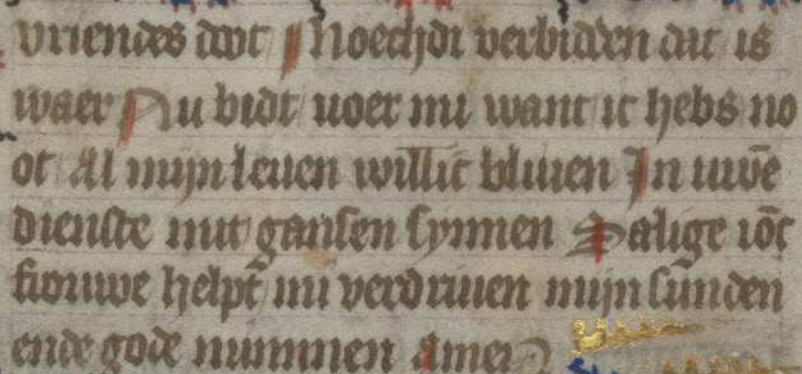 vriendes doot Moechdi verbidden dat is
waer Nu bidt voer mi want ic hebs no
ot Al mijn leuen willic bliuen In uwē
dienste mit gansen synnen Salige ioc
frouwe helpt mi verdriuen mijn sunden
ende gode mynnen Amen